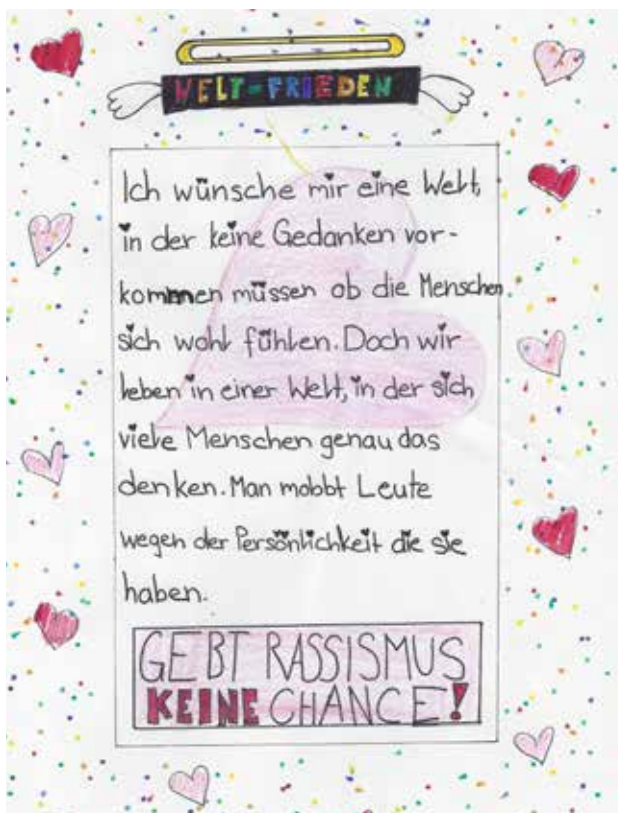 WELT-FRIEDEN
Ich wünsche mir eine Welt,
in der keine Gedanken vor-
kommen müssen ob die Menschen
sich wohl fühlen. Doch wir
leben in einer Welt, in der sich
viele Menschen genau das
denken. Man mobbt Leute
wegen der Persönlichkeit die sie
haben.
GEBT RASSISMUS
KEINE CHANCE!